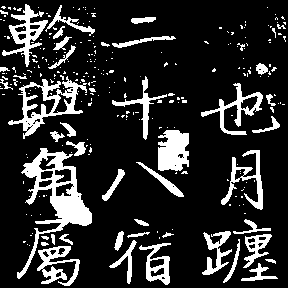 也月躔
二十八宿
軫與角屬